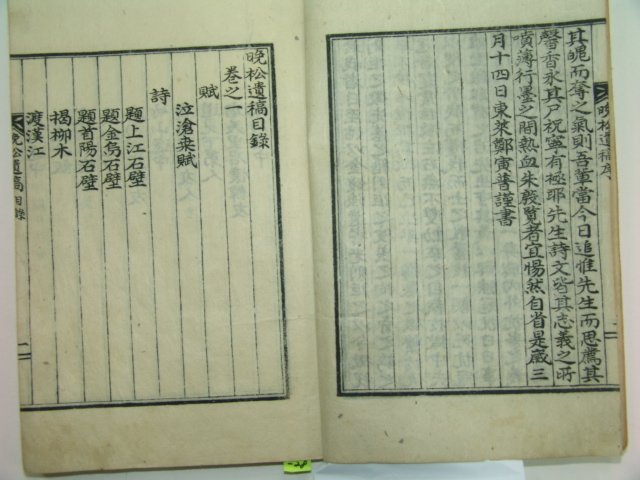 其晛而奪之氣則吾輩當今日追惟先生而思薦其
馨香永其尸祝寧有極耶先生詩文皆其志義之所
噴薄行墨之間熱血朱殷覽者宜惕然自省是歲三
月十四日東萊鄭寅普謹書
晩松遺稿序
一
晩松遺稿目錄
卷之一
賦
泣滄桑賦
詩
題上江石壁
題金烏石壁
題首陽石壁
楬柳木
渡漢江
晩松遺稿 目錄
二
-28